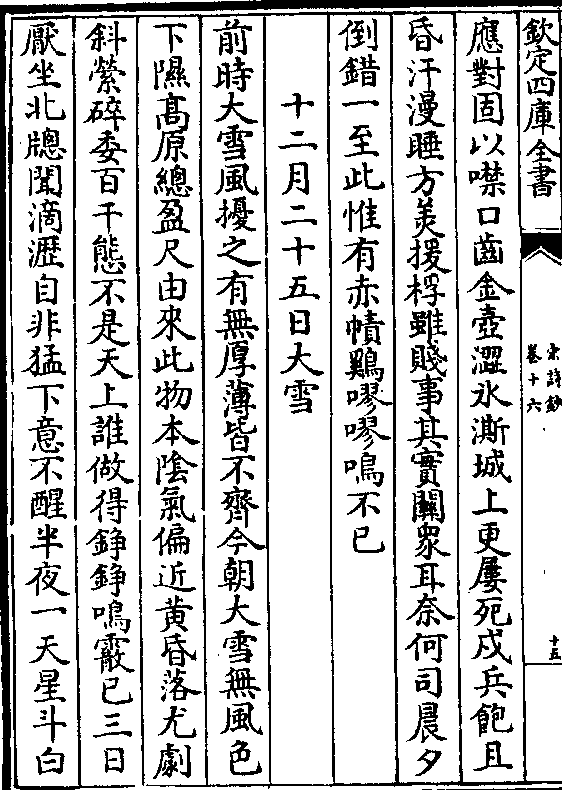 欽定四庫全書
宋詩鈔
卷十六
十五
應對固以噤口齒金壺澀氷澌城上更屢死戍兵飽且
昏汗漫睡方美援桴雖賤事其實關衆耳奈何司晨夕
倒錯一至此惟有赤幘鷄嘐嘐鳴不已
十二月二十五日大雪
前時大雪風擾之有無厚薄皆不齊今朝大雪無風色
下隰髙原總盈尺由來此物本陰氣偏近黄昏落尤劇
斜縈碎委百千態不是天上誰做得錚錚鳴霰已三日
厭坐北牕聞滴瀝自非猛下意不醒半夜一天星斗白